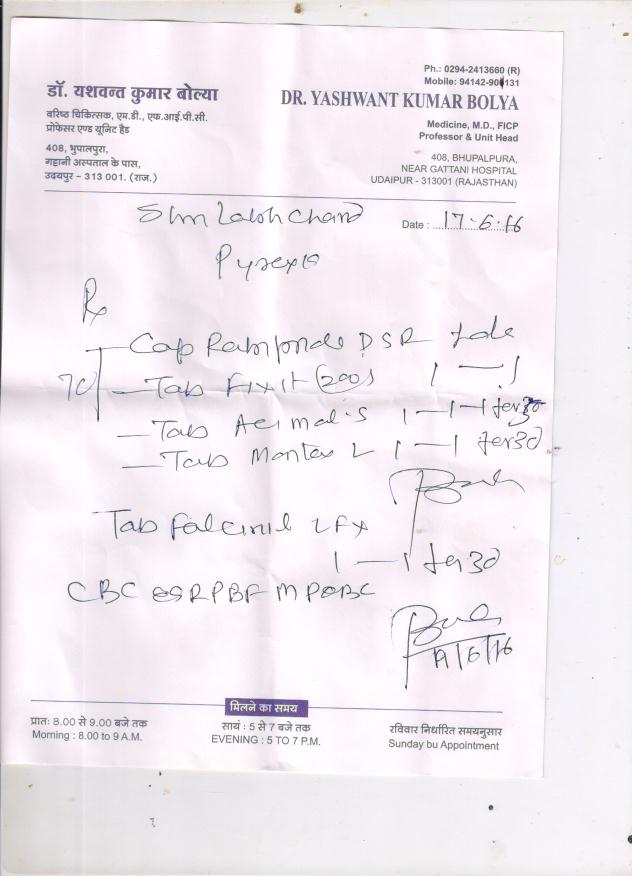 Ph.: 0294-2413660 (R)
Mobile: 94142-90131
डॉ. यशवन्त कुमार बोल्या
DR. YASHWANT KUMAR BOLYA
वरिष्ठ चिकित्सक, एम.डी., एफ.आई.पी.सी.
प्रोफेसर एण्ड यूनिट हैड
Medicine, M.D., FICP
Professor & Unit Head
408, भुपालपुरा,
गट्टानी अस्पताल के पास,
उदयपुर - 313 001. (राज.)
408, BHUPALPURA,
NEAR GATTANI HOSPITAL
UDAIPUR - 313001 (RAJASTHAN)
Labh Chand
Date : 17.6.16
Pyrexia
Rx
Cap DSR
Tab (200) 1 — 1
Tab 1 — 1 — 1
Tab Montas L 1 — 1 for 3d
Tab Falcinil LFX
1 — 1 for 3d
CBC ESR PBF MP
/6/16
मिलने का समय
प्रातः 8.00 से 9.00 बजे तक
Morning : 8.00 to 9 A.M.
सायं : 5 से 7 बजे तक
EVENING : 5 TO 7 P.M.
रविवार निर्धारित समयनुसार
Sunday bu Appointment